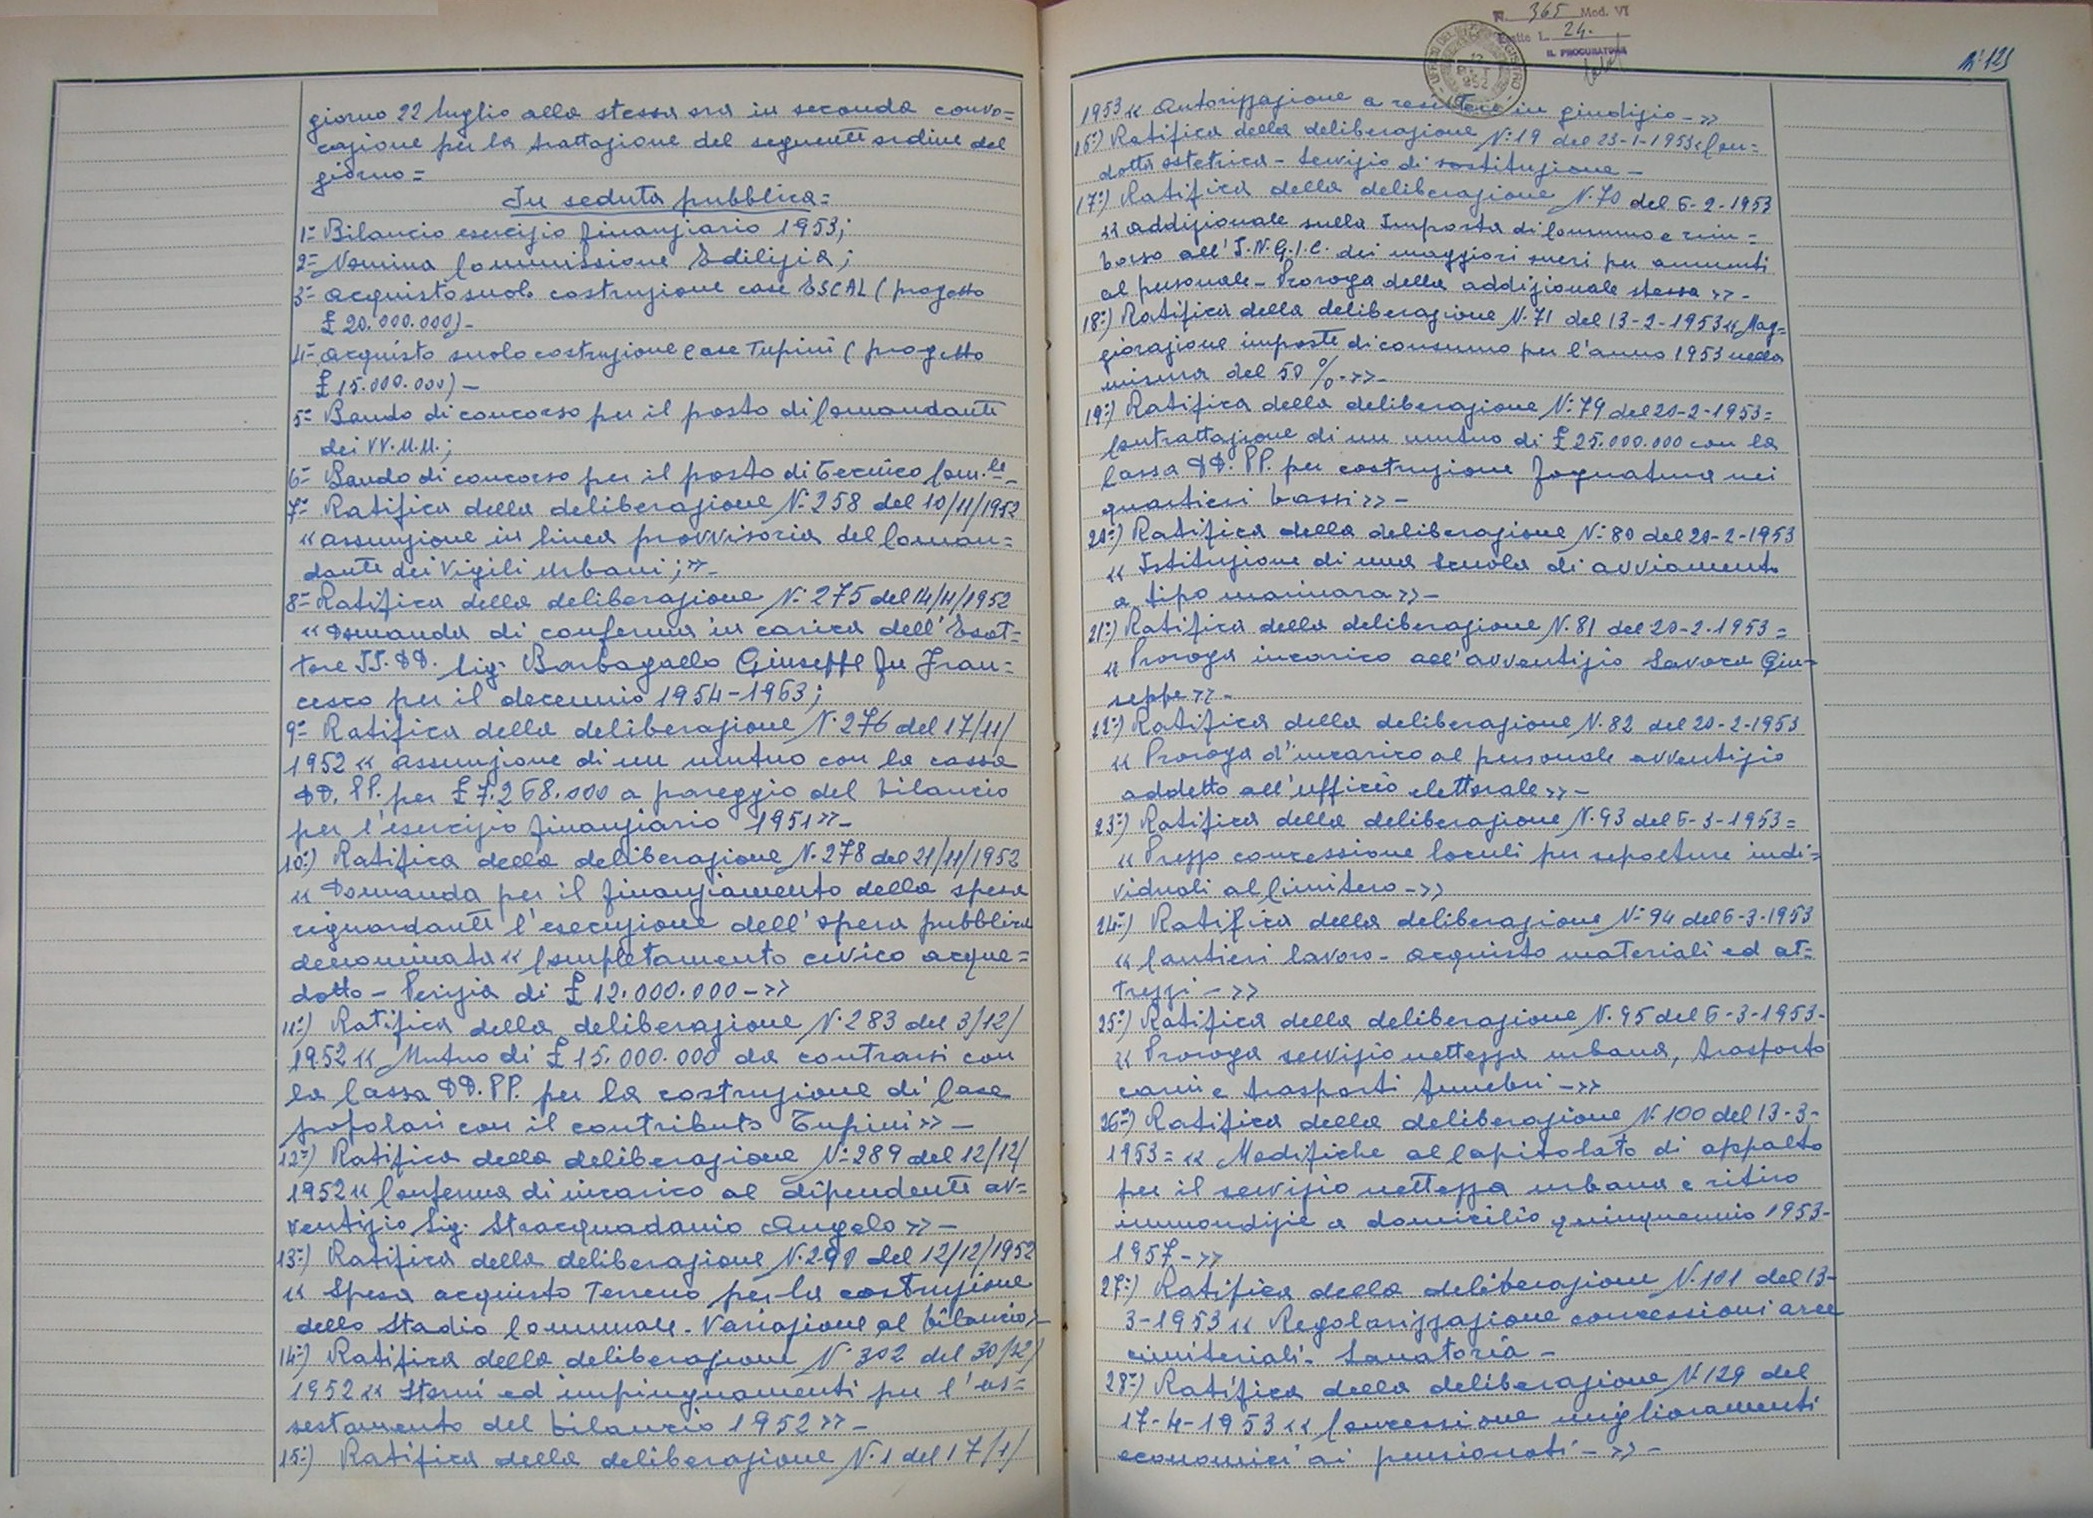 giorno 22 luglio alla stessa ora in seconda convo=
cazione per la trattazione del seguente ordine del
giorno=
In seduta pubblica=
1= Bilancio esercizio finanziario 1953;
2= Nomina Commissione Edilizia;
3= acquisto suolo costruzione case ESCAL ( progetto
£ 20.000.000)-
4= acquisto suolo costruzione case Tupini ( progetto
£ 15.000.000)-
5= Bando di concorso per il posto di Comandante
dei VV.UU.;
6= Bando di concorso per il posto di Tecnico Com.le-
7= Ratifica della deliberazione N. 258 del 10/11/1952
«assunzione in linea provvisoria del Coman=
dante dei Vigili Urbani;»-
8= Ratifica della deliberazione N. 275 del 14/11/1952
«Domanda di conferma in carica dell'Esat=
tore II.DD. Sig. Barbagallo Giuseppe fu Fran=
cesco per il decennio 1954-1963;
9= Ratifica della deliberazione N. 276 del 17/11/
1952 « assunzione di un mutuo con la cassa
DD. PP. per £ 7.268.000 a pareggio del bilancio
per l'esercizio finanziario 1951»-
10=) Ratifica della deliberazione N. 278 del 21/11/1952
« Domanda per il finanziamento della spesa
riguardante l'esecuzione dell'opera pubblica
denominata « Completamento civico acque=
dotto - Perizia di £ 12.000.000-»
11=) Ratifica della deliberazione N. 283 del 3/12/
1952 « Mutuo di £ 15.000.000 da contrarsi con
la Cassa DD.PP. per la costruzione di Case
popolari con il contributo Tupini»-
12=) Ratifica della deliberazione N. 289 del 12/12/
1952 « Conferma di incarico al dipendente av=
ventizio Sig. Stracquadanio Angelo»-
13=) Ratifica della deliberazione N. 290 del 12/12/1952
« Spesa acquisto Terreno per la costruzione
dello Stadio Comunale. Variazione al bilancio»-
14=) Ratifica della deliberazione N. 302 del 30/12/
1952 « Storni ed impinguamenti per l'as=
sestamento del bilancio 1952»-
15=) Ratifica della deliberazione N. 1 del 17/1/
N. 365 Mod. VI
L. 24.
IL PROCURATORE
N. 121
1953 « autorizzazione a resistere in giudizio-»
16=) Ratifica della deliberazione N. 19 del 23-1-1953 «Con=
dotta ostetrica - Servizio di sostituzione-
17=) Ratifica della deliberazione N. 70 del 6-2-1953
« addizionale sulla Imposta di Consumo e rim=
borso all'I.N.G.I.C. dei maggiori oneri per aumenti
al personale - Proroga della addizionale stessa»-
18=) Ratifica della deliberazione N. 71 del 13-2-1953 «Mag=
giorazione imposte di consumo per l'anno 1953 nella
misura del 50%-»-
19=) Ratifica della deliberazione N. 79 del 20-2-1953=
Contrattazione di un mutuo di £ 25.000.000 con la
Cassa DD. PP. per costruzione fognatura nei
quartieri bassi»-
20=) Ratifica della deliberazione N. 80 del 20-2-1953
« Istituzione di una scuola di avviamento
a tipo marinara»-
21=) Ratifica della deliberazione N. 81 del 20-2-1953=
« Proroga incarico all'avventizio Savoca Giu=
seppe»-
22=) Ratifica della deliberazione N. 82 del 20-2-1953
« Proroga d'incarico al personale avventizio
addetto all'ufficio elettorale»-
23=) Ratifica della deliberazione N. 93 del 6-3-1953=
« Prezzo concessione loculi per sepolture indi=
viduali al Cimitero-»
24=) Ratifica della deliberazione N. 94 del 6-3-1953
« Cantieri lavoro - acquisto materiali ed at=
trezzi-»
25=) Ratifica della deliberazione N. 95 del 6-3-1953-
« Proroga servizio nettezza urbana, trasporto
carni e trasporti funebri-»
26=) Ratifica della deliberazione N. 100 del 13-3-
1953= « Modifiche al Capitolato di appalto
per il servizio nettezza urbana e ritiro
immondizie a domicilio quinquennio 1953-
1957-»
27=) Ratifica della deliberazione N. 101 del 13-
3-1953 « Regolarizzazione concessioni aree
cimiteriali. Sanatoria-
28=) Ratifica della deliberazione N. 129 del
17-4-1953 « Concessione miglioramenti
economici ai pensionati-»-